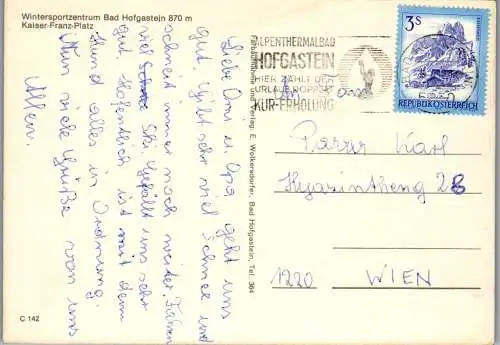 Wintersportzentrum Bad Hofgastein 870 m
Kaiser-Franz-Platz
Liebe Oma u. Opa geht uns
gut. Gibt sehr viel Schnee und
schneit immer noch weiter. Fahren
viel Ski. Gefällt uns sehr
gut. Hofentlich ist mit dem
Hund alles in Ordnung.
Nun viele Grüße von uns
Allen.
C 142
Farbaufnahme und Verlag: E. Wolkersdorfer, Bad Hofgastein, Tel. 364
ALPENTHERMALBAD
HOFGASTEIN
HIER ZÄHLT DER
URLAUB DOPPELT
KUR-ERHOLUNG
3 S
REPUBLIK ÖSTERREICH
An
Karl
Hyazintheng 28
1220 WIEN